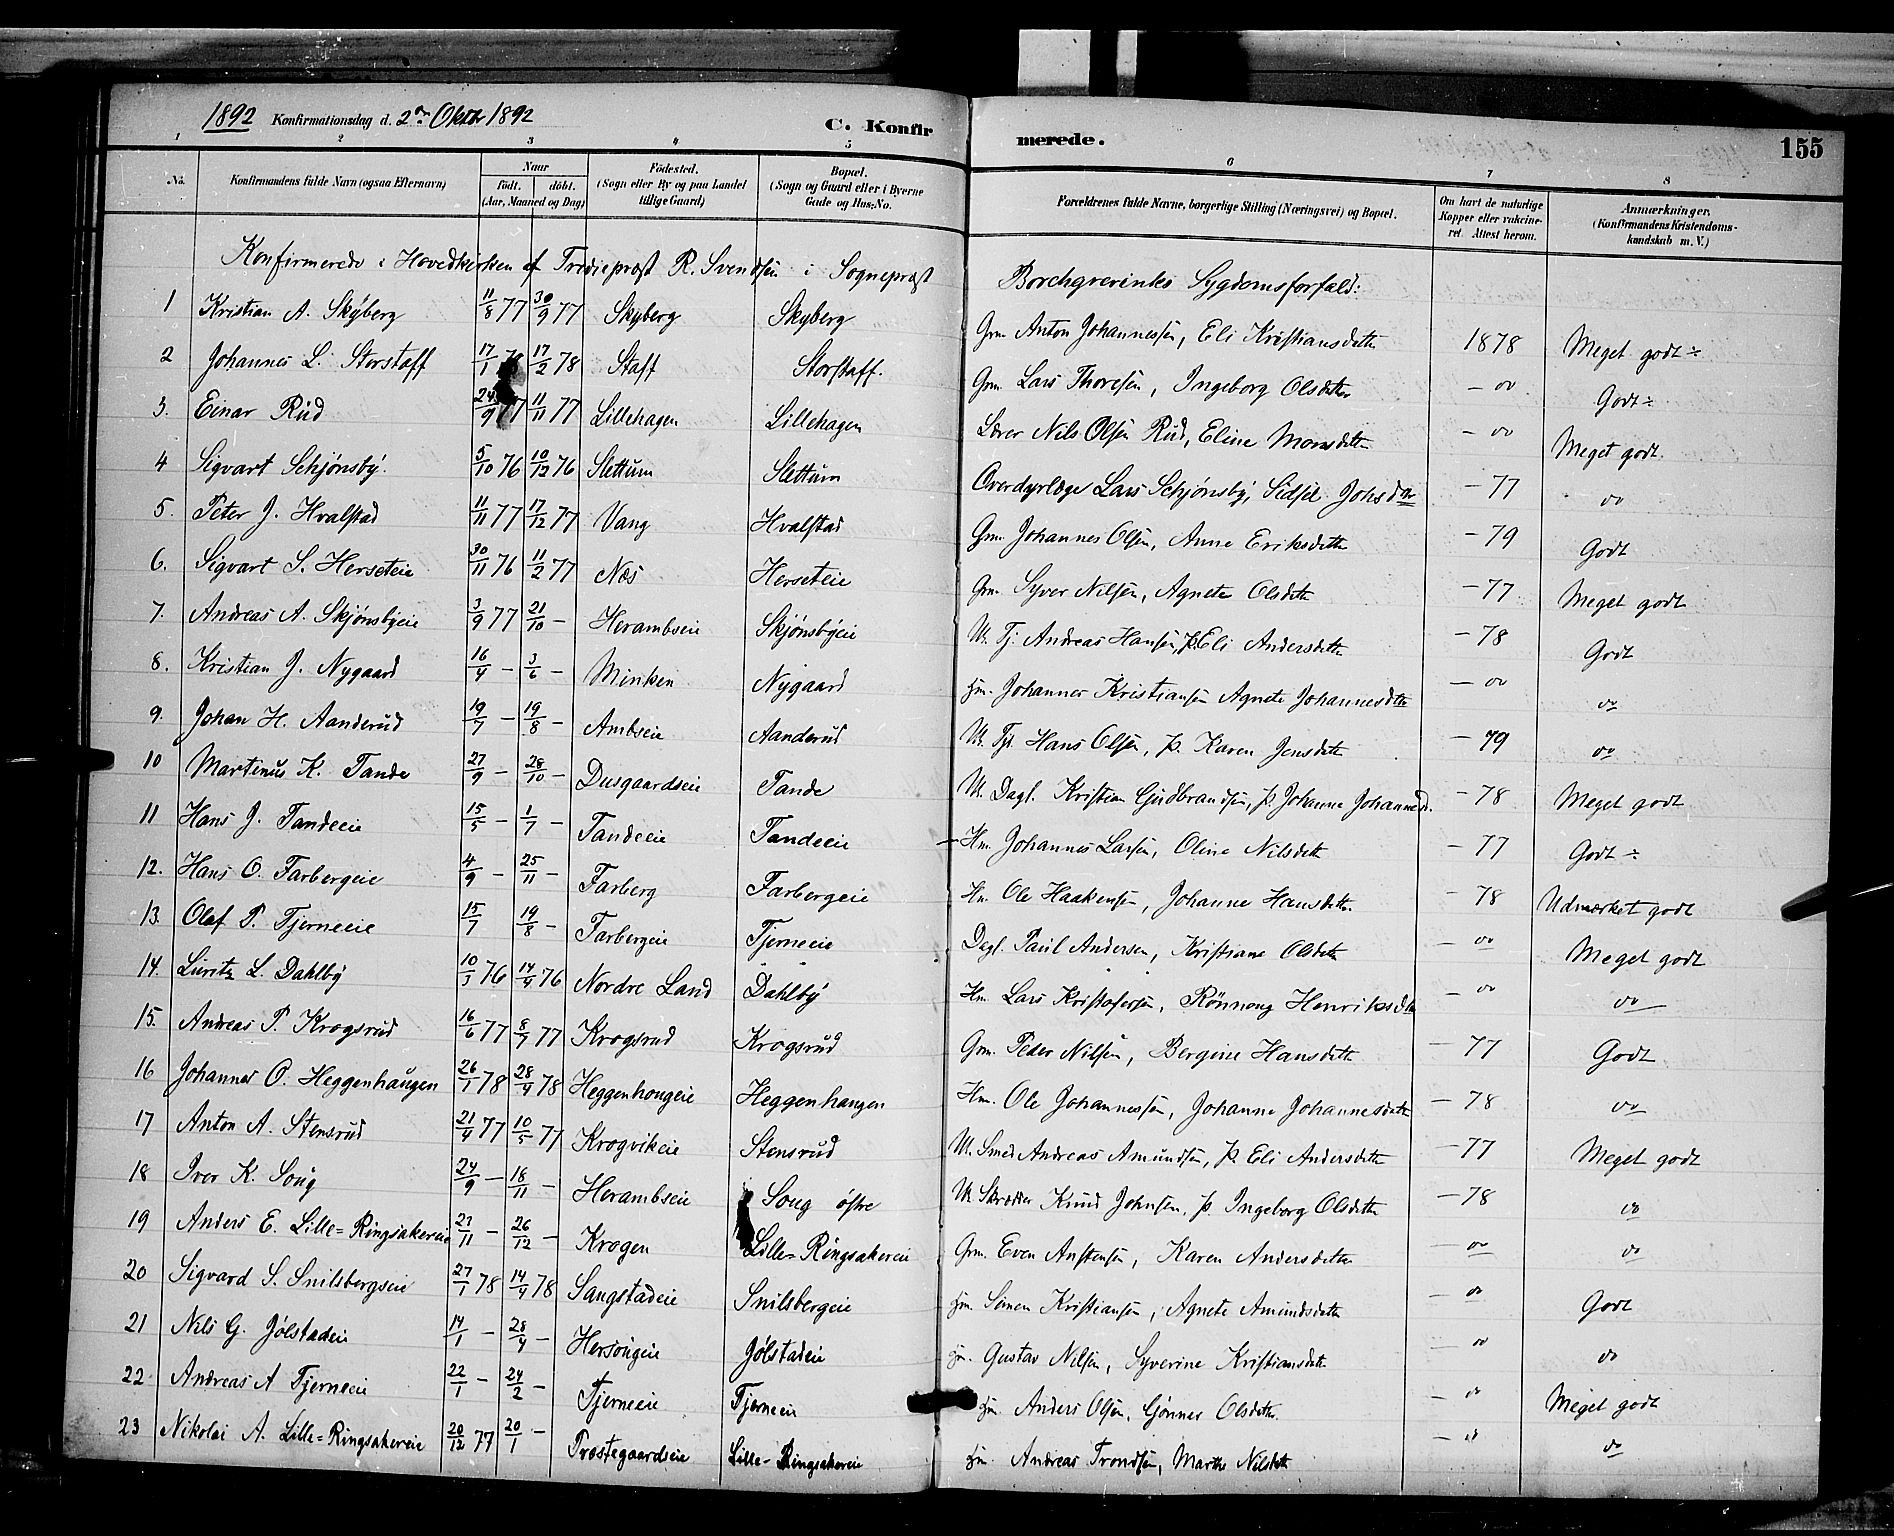 1892 Konfirmationsdag d. 2den Oktbr 1892 C. Konfirmerede. 155
1 2 3 4 5 6 7 8
No. | Konfirmandens fulde Navn (ogsaa Efternavn) | Naar født. døbt. (Aar, Maaned og Dag) | Fødested. (Sogn eller By og paa Landet tillige Gaard) | Bopæl. (Sogn og Gaard eller i Byerne Gade og Hus-No. | Forældrenes fulde Navne, borgerlige Stilling (Næringsvei) og Bopæl. | Om havt de naturlige Kopper eller vaccineret. Attest herom. | Anmærkninger. (Konfirmandens Kristendomskundskab m. V.)
Konfirmerede i Hovedkirken af Tredieprest R. Svendsen i Sogneprest Borchgrevinks Sygdomsforfald:
1 Kristian A. Skyberg 11/8 77 30/9 77 Skyberg Skyberg Grm. Anton Johannessen, Eli Kristiansdatter 1878 Meget godt ÷
2 Johannes L. Storstaff 17/1 78 17/2 78 Staff Storstaff. Grm. Lars Thoresen, Ingeborg Olsdatter - oo Godt ÷
3. Einar Rud 24/9 77 11/11 77 Lillehagen Lillehagen Lærer Nils Olsen Rud, Eline Monsdatter - oo Meget godt
4 Sigvart Schjønsby. 5/10 76 10/12 76 Slettum Slettum Overdyrlæge Lars Schjønsby, Sidsel Johsdtr - 77 oo
5. Peter J. Hvalstad 11/11 77 17/12 77 Vang Hvalstad Grm. Johannes Olsen, Anne Eriksdatter - 79 Godt
6. Sigvart S. Herseteie 30/11 76 11/2 77 Næs Herseteie Grm. Syver Nilsen, Agnete Olsdtr - 77 Meget godt
7. Andreas A. Skjønsbyeie 3/9 77 21/10 - Herambseie Skjønsbyeie U. Tj. Andreas Hansen, p. Eli Andersdtr - 78 Godt
8. Kristian J. Nygaard 16/4 - 3/6 - Minken Nygaard Hm. Johannes Kristiansen Agnete Johannesdtr - oo oo
9. Johan H. Aanderud 19/7 - 19/8 - Ambseie Aanderud U. Tj. Hans Olsen, p. Karen Jensdtr - 79 oo
10 Martinus K. Tande 27/9 - 28/10 - Dusgaardseie Tande U. Dagl. Kristian Gudbrandsen, p. Johanne Johannesd. - 78 Meget godt
11 Hans J. Tandeeie 15/5 - 1/7 - Tandeeie Tandeeie - Hm. Johannes Larsen, Oline Nilsdtr - 77 Godt ÷
12. Hans O. Farbergeie 4/9 - 25/11 - Farberg Farbergeie Hm. Ole Haakensen, Johanne Hansdtr. - 78 Udmærket godt
13 Olaf P. Tjerneeie 15/7 19/8 - Farbergeie Tjerneeie Dagl. Paul Andersen, Kristiane Olsdtr - oo Meget godt
14. Luritz L. Dahlby 10/3 76 14/4 76 Nordre Land Dahlby Hm. Lars Kristofersen, Rønnaug Henriksdtr - oo oo
15. Andreas P. Krogsrud 16/6 77 8/7 77 Krogsrud Krogsrud Grm. Peder Nilsen, Bergine Hansdtr - 77 Godt
16 Johannes O. Heggenhaugen 26/1 78 28/4 78 Heggenhougeie Heggenhaugen Hm. Ole Johannessen, Johanne Johannesdtr - 78 oo
17 Anton A. Stensrud 21/4 77 10/5 77 Krogvikeie Stensrud U. Smed Andreas Amundsen, p. Eli Andersdtr - 77 Meget godt
18 Iver K. Soug 24/9 - 18/11 - Herambseie Soug østre U. Skrædder Knud Johnsen, p. Ingeborg Olsdtr - 78 oo
19 Anders E. Lille-Ringsakereie 27/11 - 26/12 - Krogen Lille-Ringsakereie Grm. Even Anstensen, Karen Andersdtr - oo oo
20 Sigvard S. Snilsbergseie 27/1 78 14/4 78 Sangstadeie Snilsbergeie Hm. Simen Kristiansen, Agnete Amundsdtr - oo Godt
21 Nils G. Jølstadeie 14/1 - 28/4 - Hersougeie Jølstadeie Hm. Gustav Nilsen, Syverine Kristiansdtr - oo oo
22 Andreas A Tjerneeie 22/1 - 24/2 - Tjerneeie Tjerneeie Hm. Anders Olsen, Gønner Olsdtr. - oo Meget godt
23 Nikolai A. Lille-Ringsakereie 20/12 77 20/1 - Prestegaardseie Lille-Ringsakereie Hm. Andreas Trondsen, Marthe Nilsdtr - oo oo